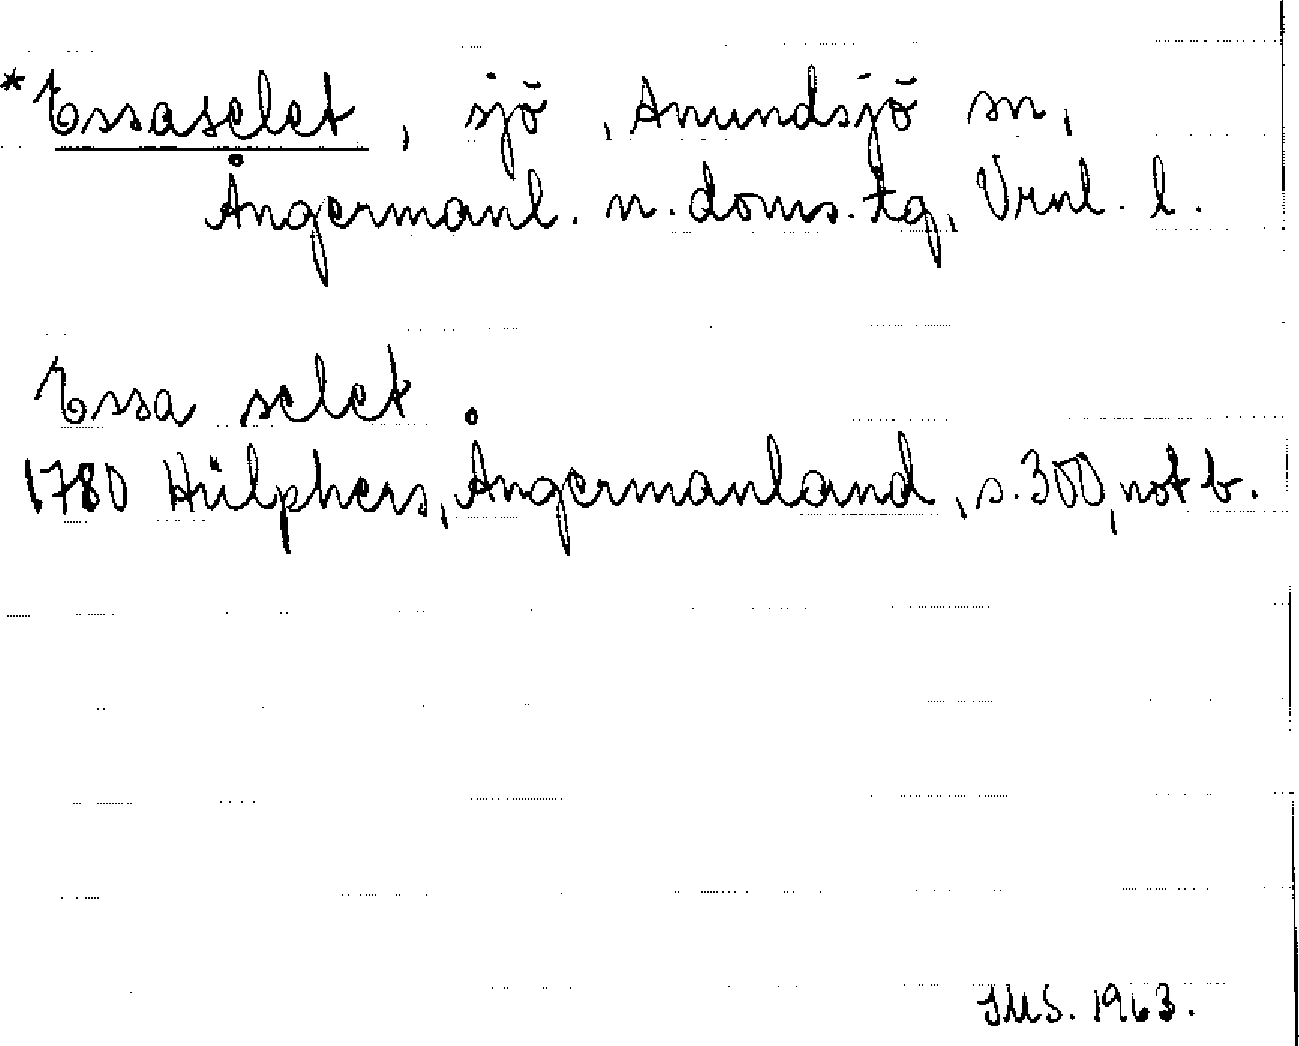 *Essaselet, sjö, Anundsjö sn,
Ångermanl. n. doms. tg, Vrnl. l.
Essa selet
1780 Hülphers, Ångermanland, s. 300, not b.
IMS. 1963.